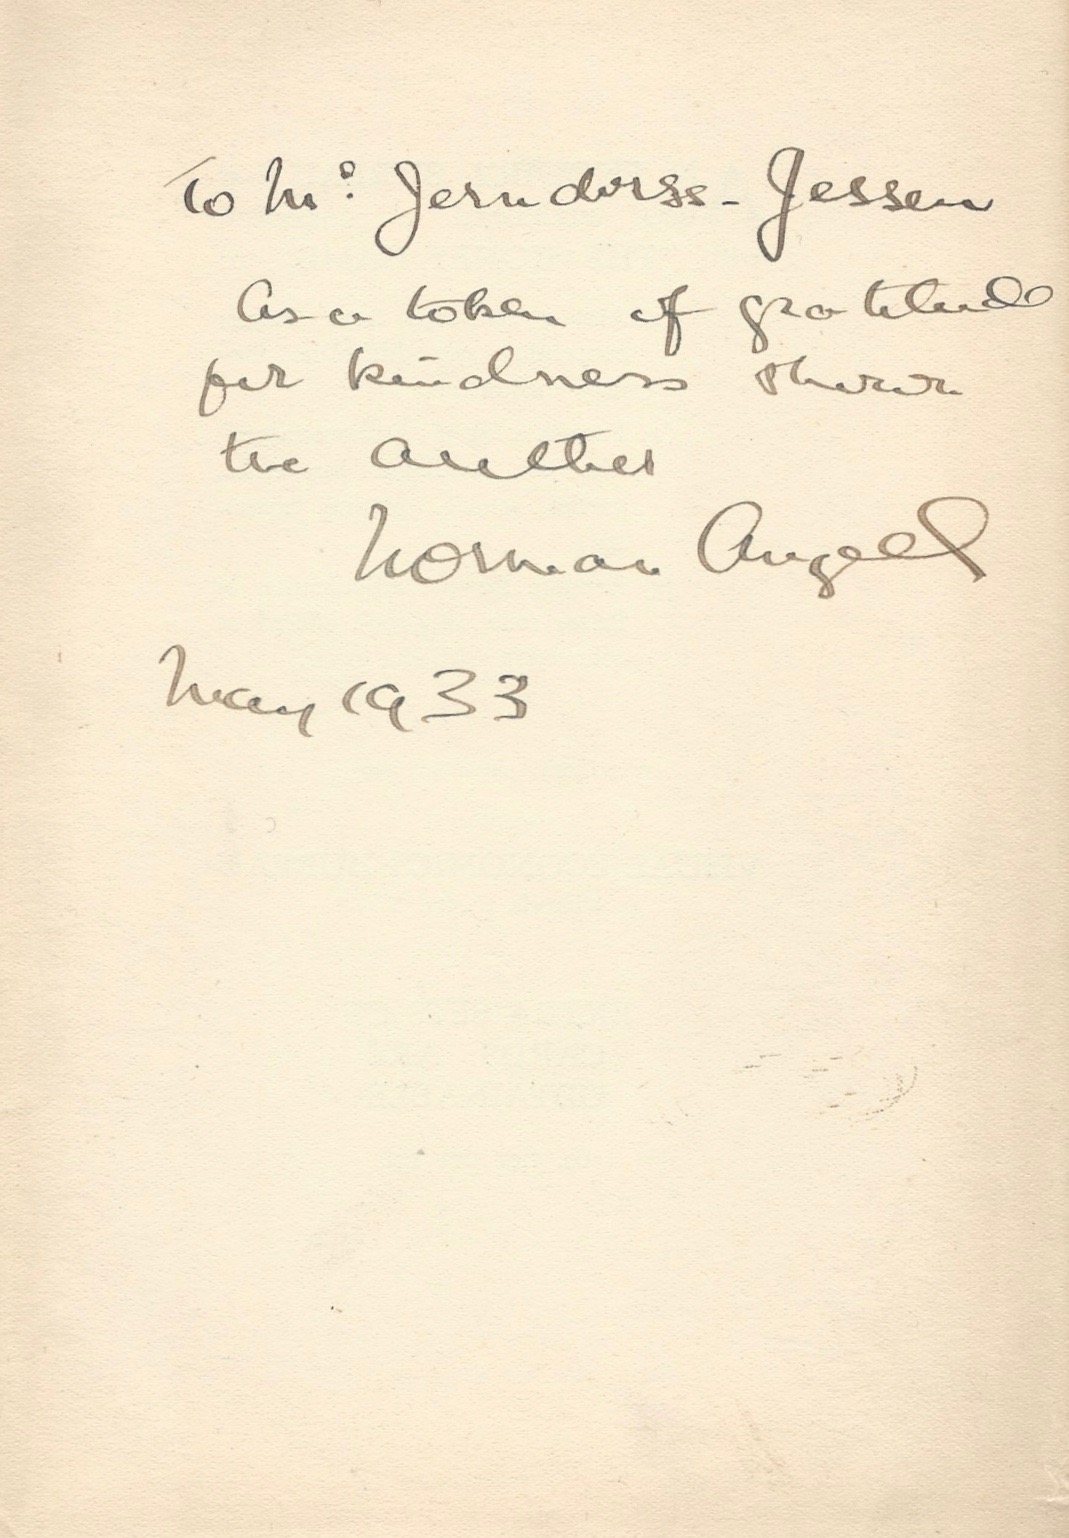 To Mr. Jerndorss-Jessen
as a token of gratitude
for kindness shown
the author
Norman Angell
May 1933